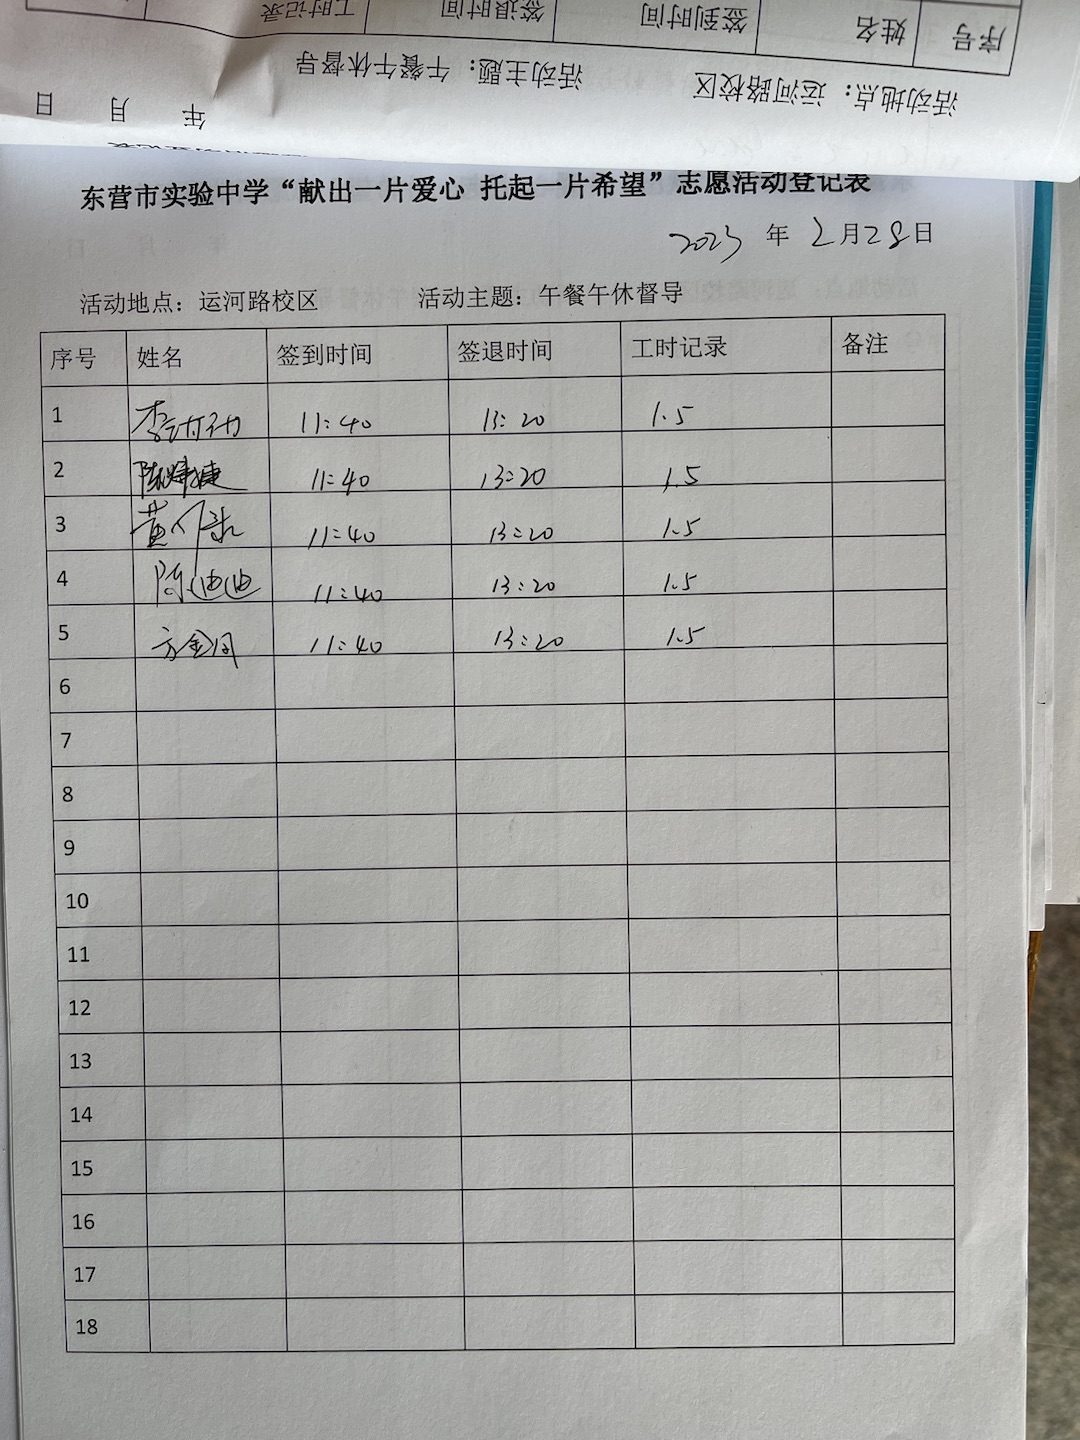 序号 姓名 签到时间 签退时间 工时记录
活动地点：运河路校区 活动主题：午餐午休督导
年 月 日
东营市实验中学“献出一片爱心 托起一片希望”志愿活动登记表
2023 年 2月28日
活动地点：运河路校区 活动主题：午餐午休督导
序号 姓名 签到时间 签退时间 工时记录 备注
1 11:40 13:20 1.5
2 陈婕 11:40 13:20 1.5
3 黄 11:40 13:20 1.5
4 陈迪迪 11:40 13:20 1.5
5 方金凤 11:40 13:20 1.5
6
7
8
9
10
11
12
13
14
15
16
17
18